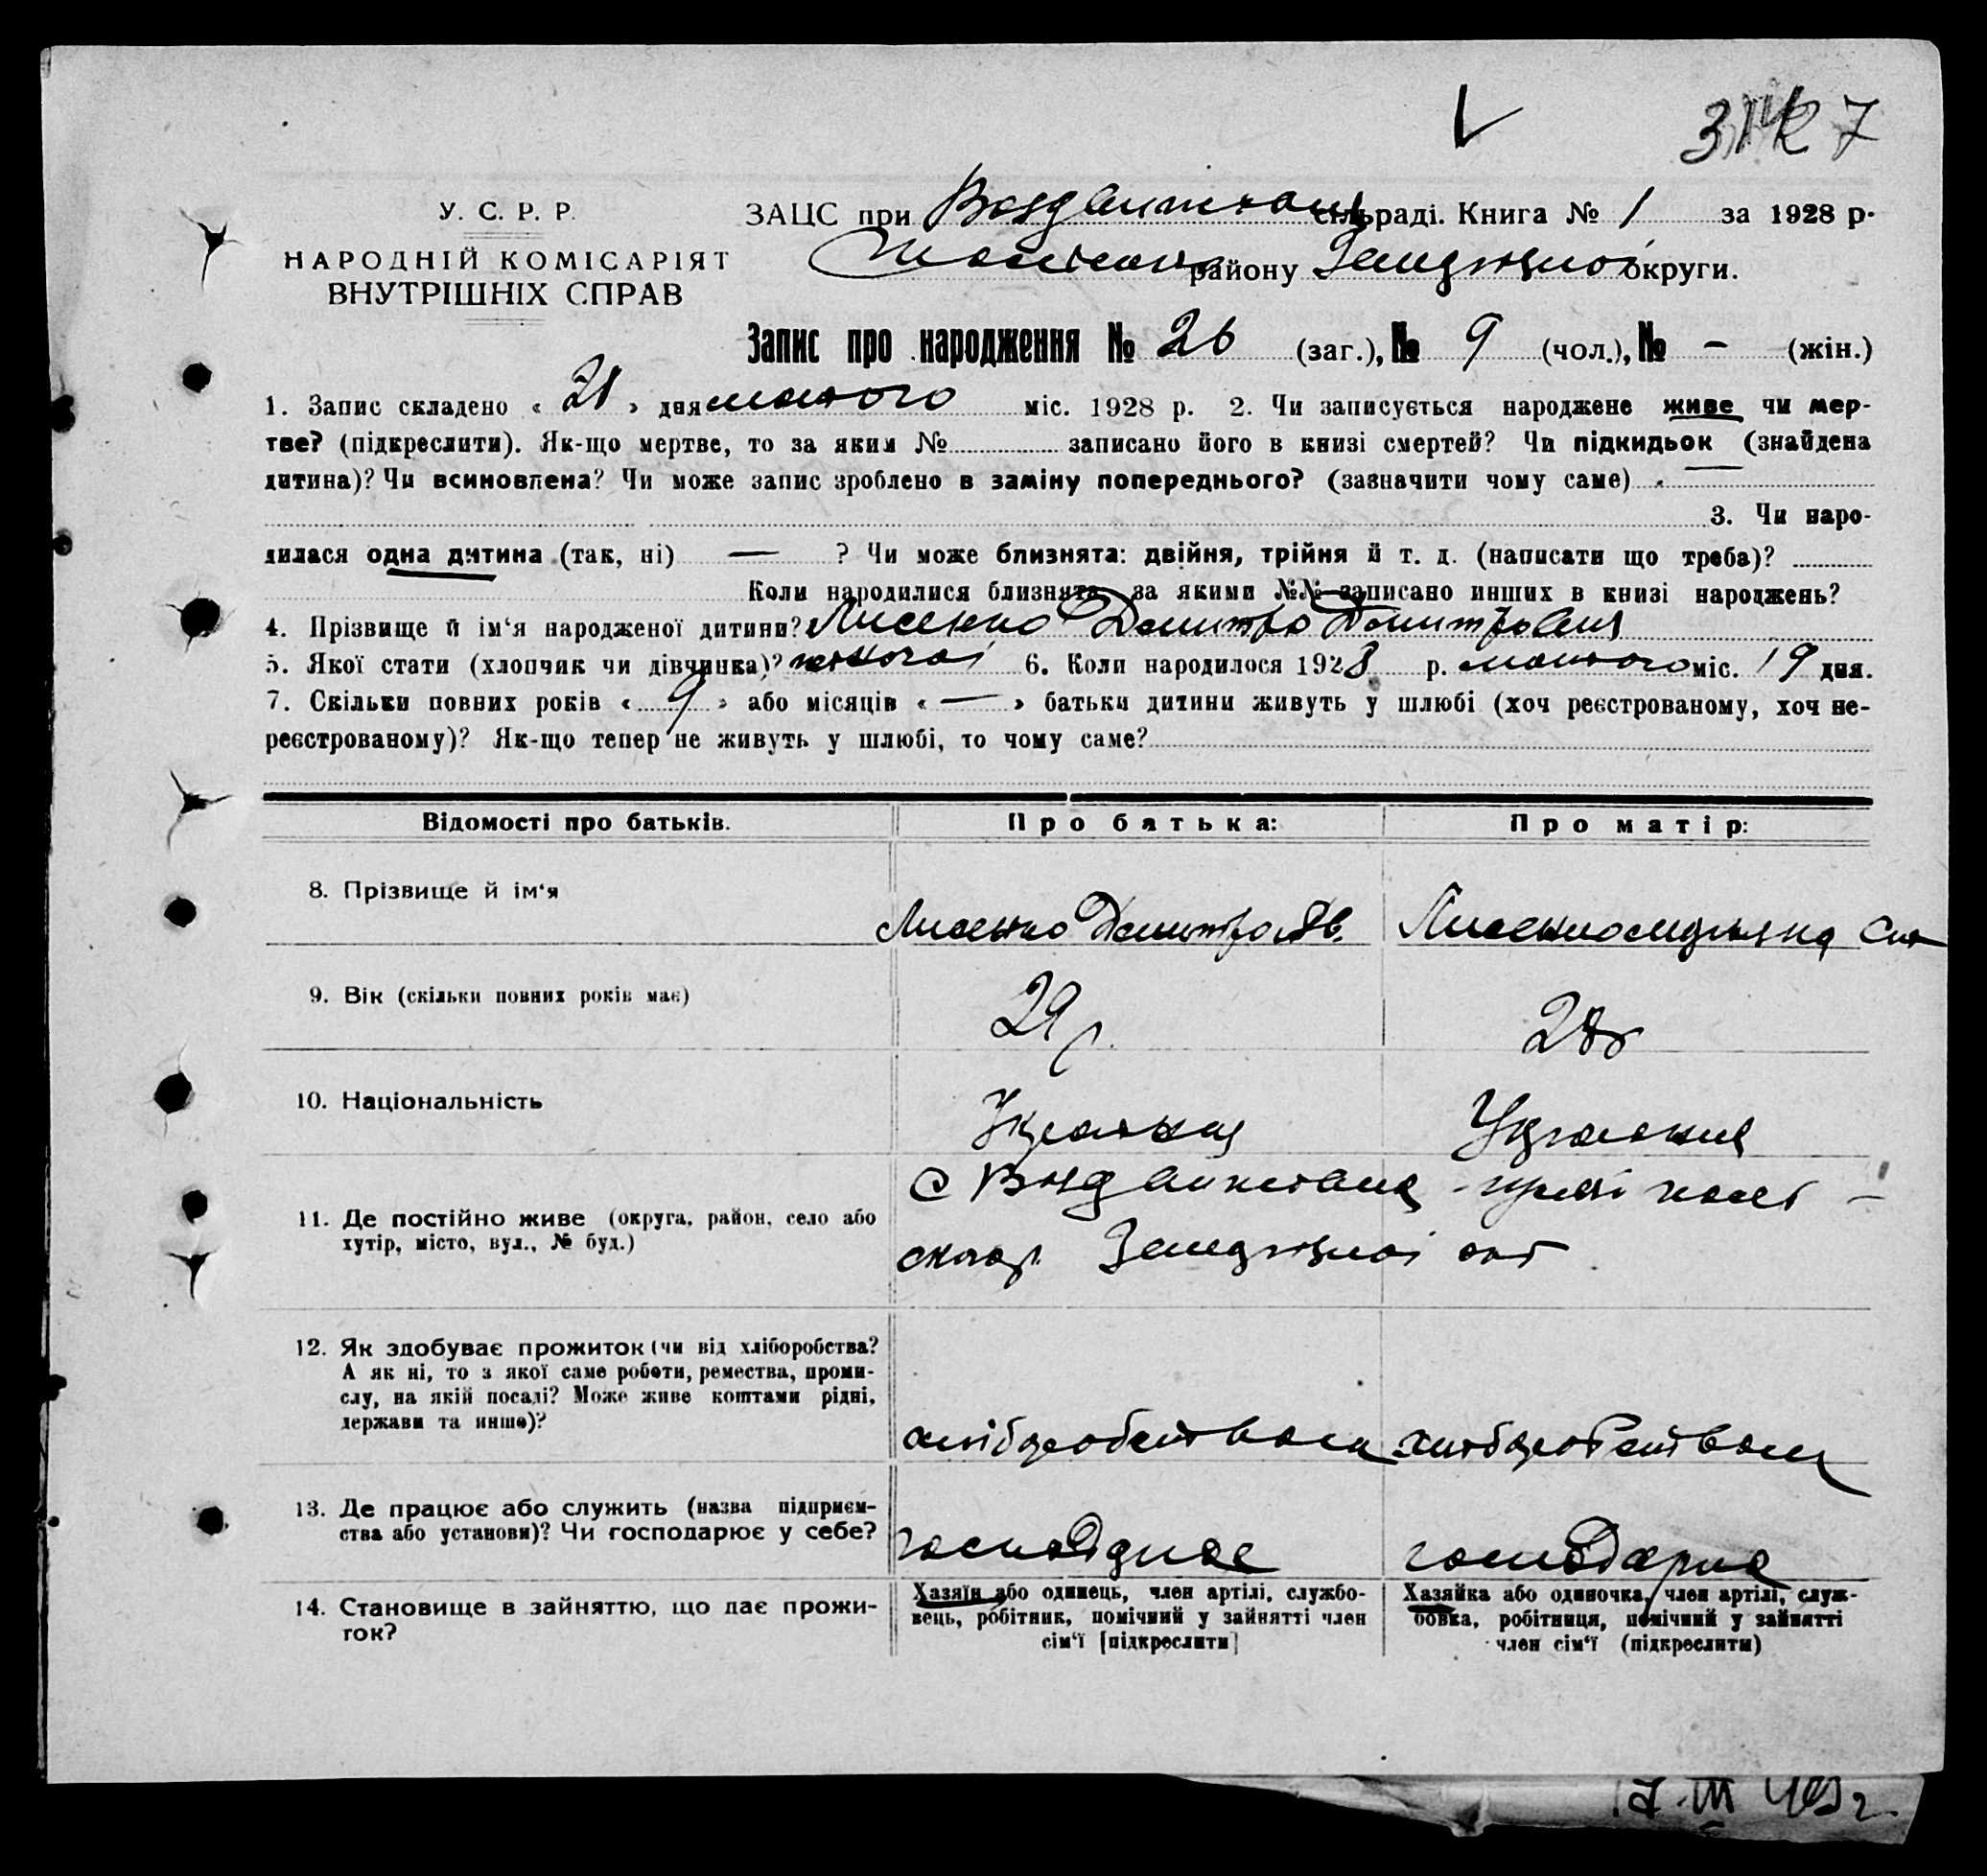 7
У. С. Р. Р.
НАРОДНІЙ КОМІСАРІЯТ
ВНУТРІШНІХ СПРАВ
ЗАЦС при сільраді. Книга № 1 за 1928 р.
району округи.
Запис про народження № 26 (заг.), № 9 (чол.), № – (жін.)
1. Запис складено « 21 » дня лютого міс. 1928 р. 2. Чи записується народжене живе чи мер-
тве? (підкреслити). Як-що мертве, то за яким № записано його в книзі смертей? Чи підкидьок (знайдена
дитина)? Чи всиновлена? Чи може запис зроблено в заміну попереднього? (зазначити чому саме) —
3. Чи наро-
дилася одна дитина (так, ні) — ? Чи може близнята: двійня, трійня й т. д. (написати що треба)?
Коли народилися близнята, за якими №№ записано инших в книзі народжень?
4. Прізвище й ім‘я народженої дитини? Лисенко Дмитро Дмитрович
5. Якої стати (хлопчик чи дівчинка)? 6. Коли народилося 1928 р. лютого міс. 19 дня.
7. Скільки повних років « 9 » або місяців « — » батьки дитини живуть у шлюбі (хоч реєстрованому, хоч не-
реєстрованому)? Як-що тепер не живуть у шлюбі, то чому саме?
Відомості про батьків. Про батька: Про матір:
8. Прізвище й ім‘я Лисенко Дмитро Лисенко
9. Вік (скільки повних років має) 29 р 28 р
10. Національність
11. Де постійно живе (округа, район, село або
хутір, місто, вул., № буд.)
12. Як здобуває прожиток (чи від хліборобства?
А як ні, то з якої саме роботи, ремества, проми-
слу, на якій посаді? Може живе коштами рідні,
держави та инше)? хліборобством хліборобством
13. Де працює або служить (назва підприєм-
ства або установи)? Чи господарює у себе?
14. Становище в зайняттю, що дає прожи-
ток?
Хазяїн або одинець, член артілі, службо-
вець, робітник, помічний у зайнятті член
сім‘ї [підкреслити]
Хазяйка або одиночка, член артілі, служ-
бовка, робітниця, помічний у зайнятті
член сім‘ї (підкреслити)